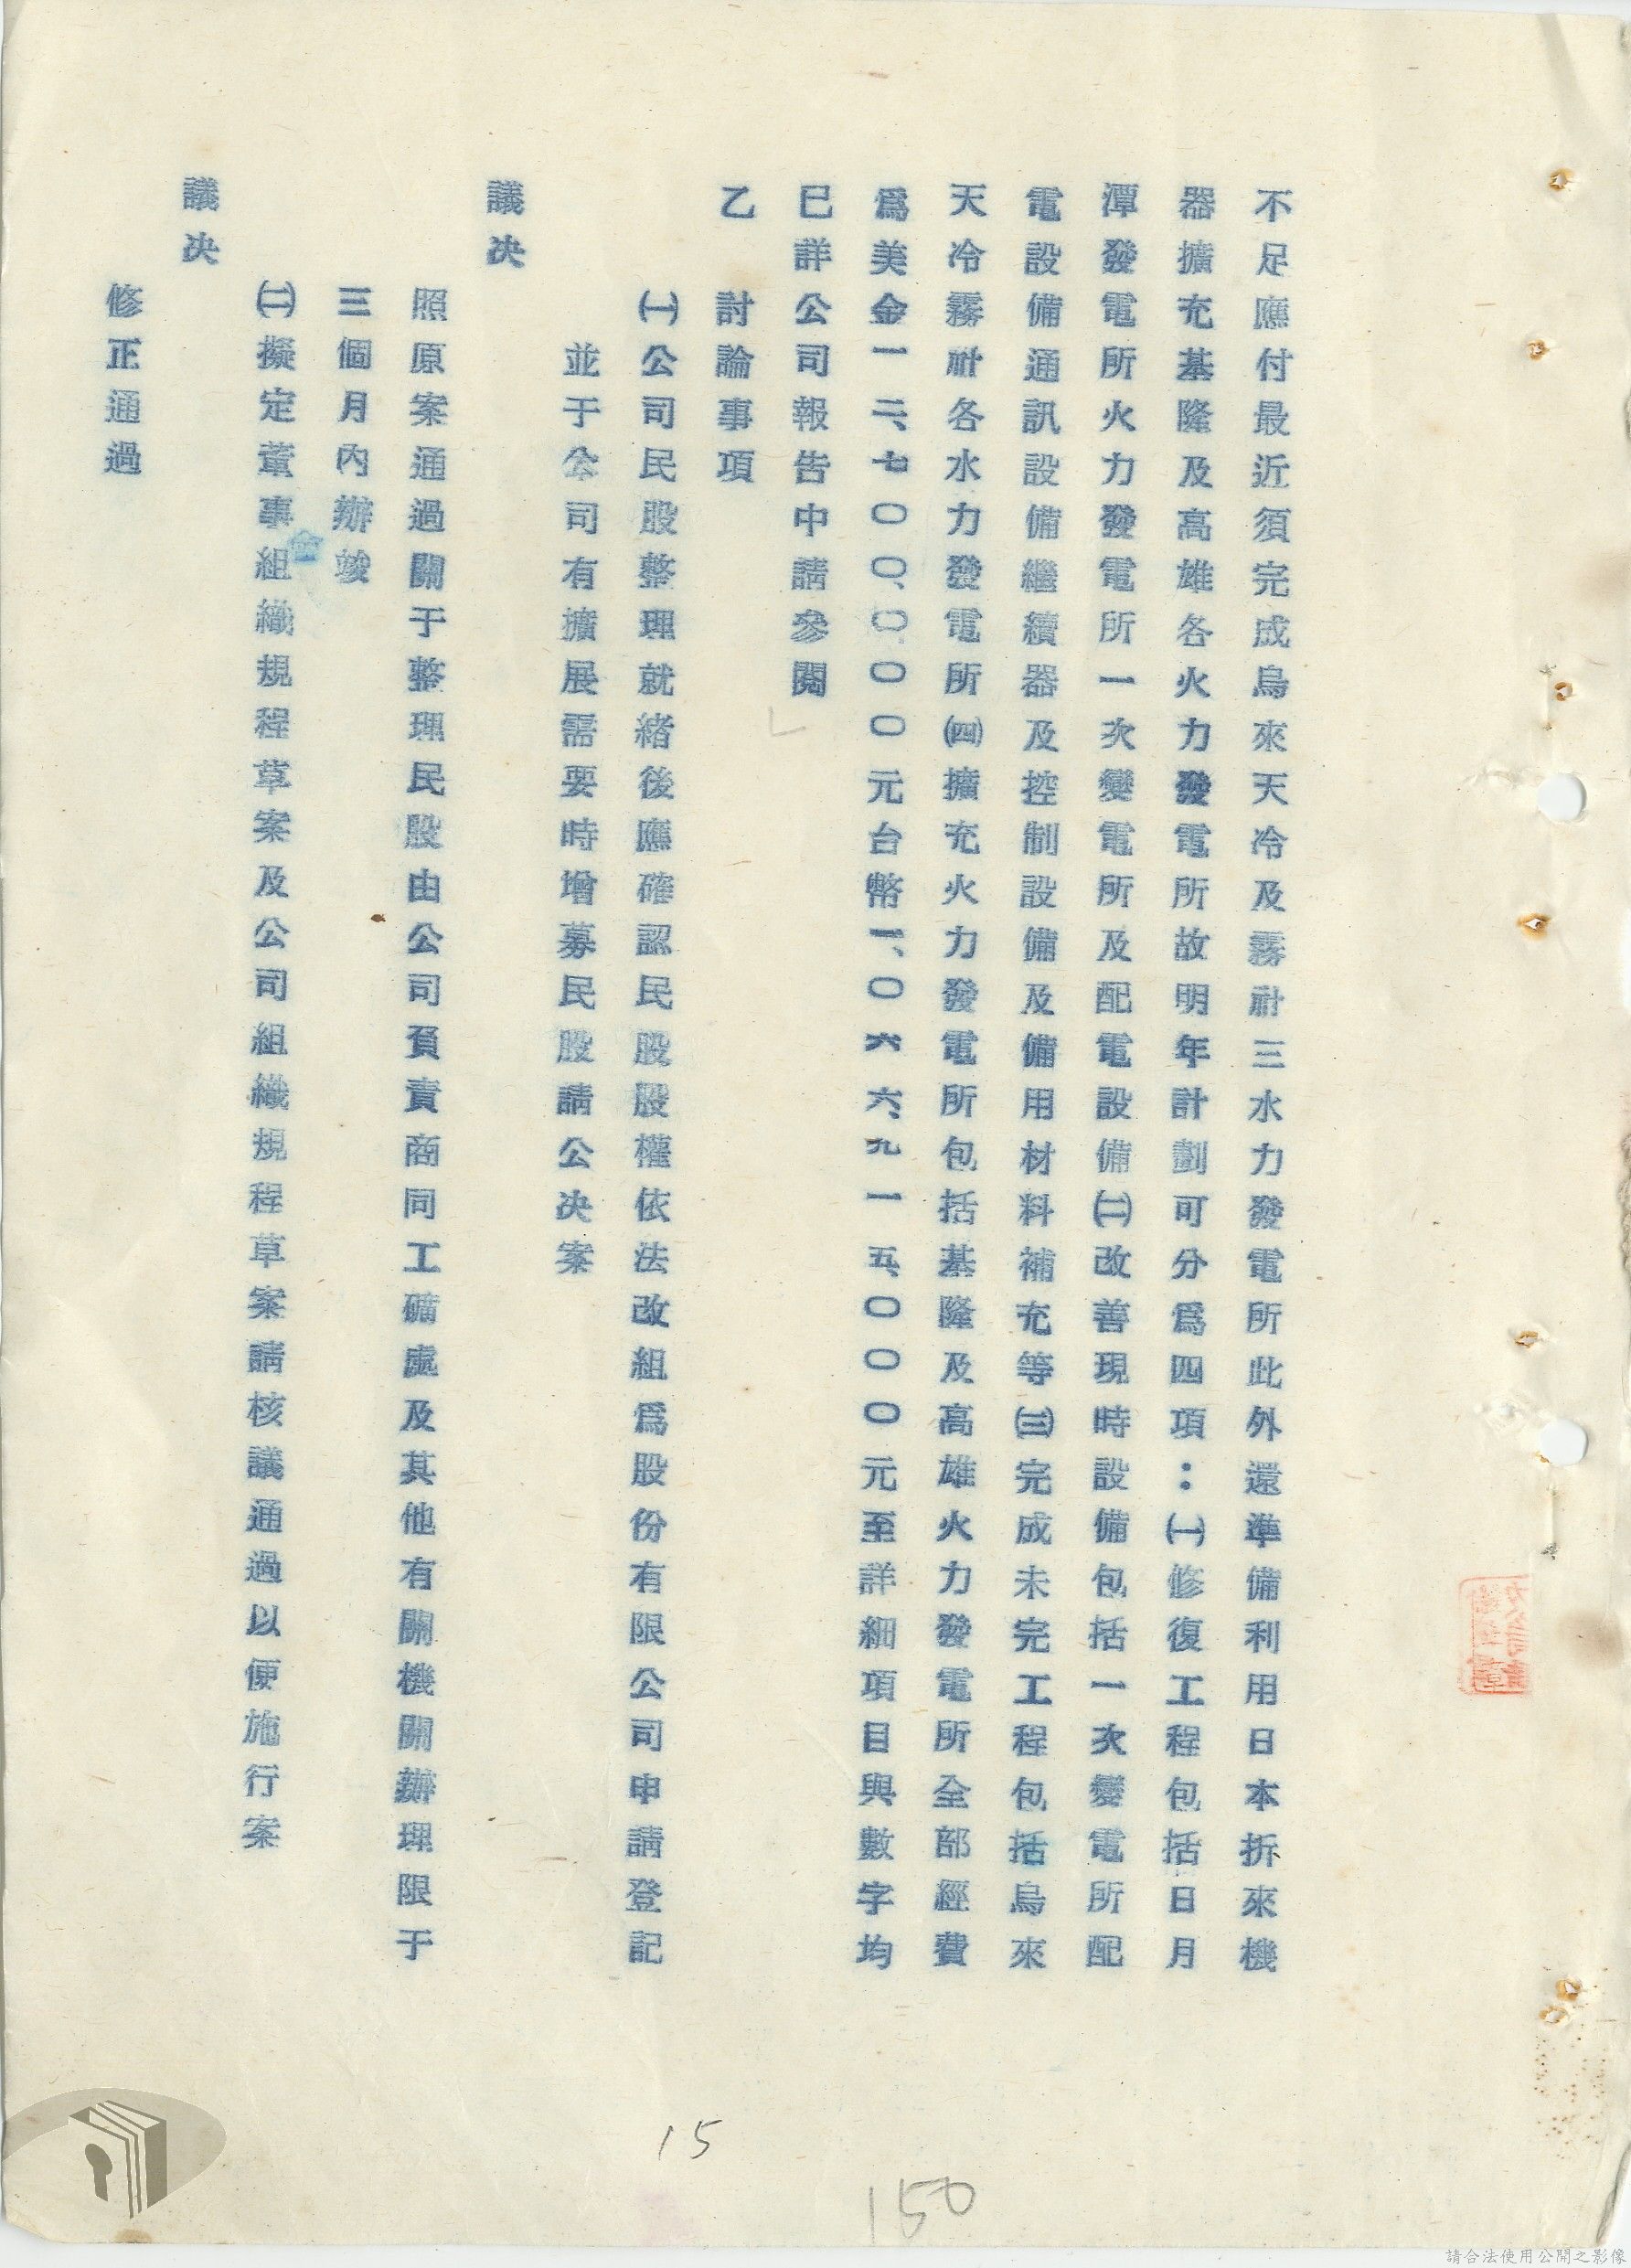 不足應付最近須完成烏來天冷及霧社三水力發電所此外還準備利用日本折來機
器擴充基隆及高雄各火力發電所故明年計劃可分爲四項：㈠修復工程包括日月
潭發電所火力發電所一次變電所及配電設備㈡改善現時設備包括一次變電所配
電設備通訊設備繼續器及控制設備及備用材料補充等㈢完成未完工程包括烏來
天冷霧社各水力發電所㈣擴充火力發電所包括基隆及高雄火力發電所全部經費
爲美金一二、七〇〇、〇〇〇元台幣一、〇六六、九一五、〇〇〇元至詳細項目與數字均
已詳公司報告中請參閱
乙 討論事項
㈠公司民股整理就緒後應確認民股股權依法改組爲股份有限公司申請登記
並于公司有擴展需要時增募民股請公決案
議决
照原案通過關于整理民股由公司負責商同工礦處及其他有關機關辦理限于
三個月內辦竣
㈡擬定董事會組織規程草案及公司組織規程草案請核議通過以便施行案
議决
修正通過
15
150
請合法使用公開之影像